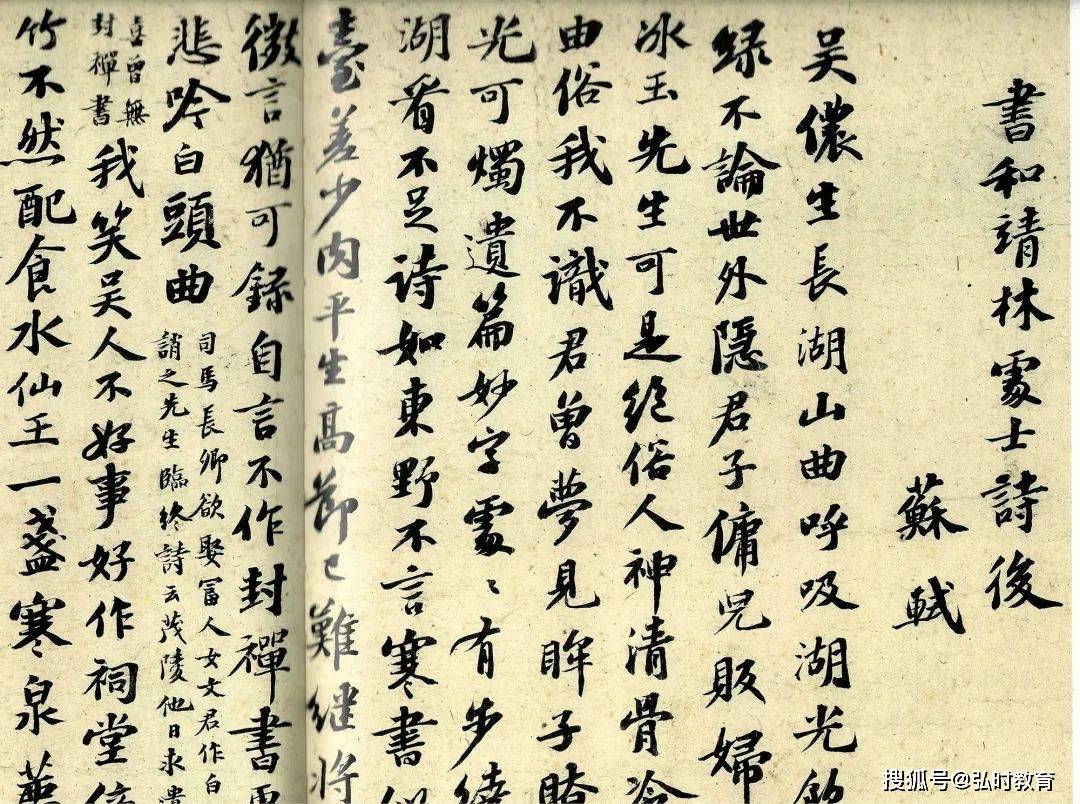 書和靖林處士詩後
蘇軾
吳儂生長湖山曲呼吸湖光飲
綠不論世外隱君子傭兒販婦
冰玉先生可是絕俗人神清骨冷
由俗我不識君曾夢見眸子瞭
光可燭遺篇妙字處〻有步繞
湖看不足詩如東野不言寒書
臺差少肉平生高節已難繼將
微言猶可錄自言不作封禪書
悲吟白頭曲
司馬長卿欲娶富人女文君作白
誚之先生臨終詩云茂陵他日求遺
喜曾無
封禪書
我笑吴人不好事好作祠堂
竹不然配食水仙王一盞寒泉薦
搜狐号@弘时教育